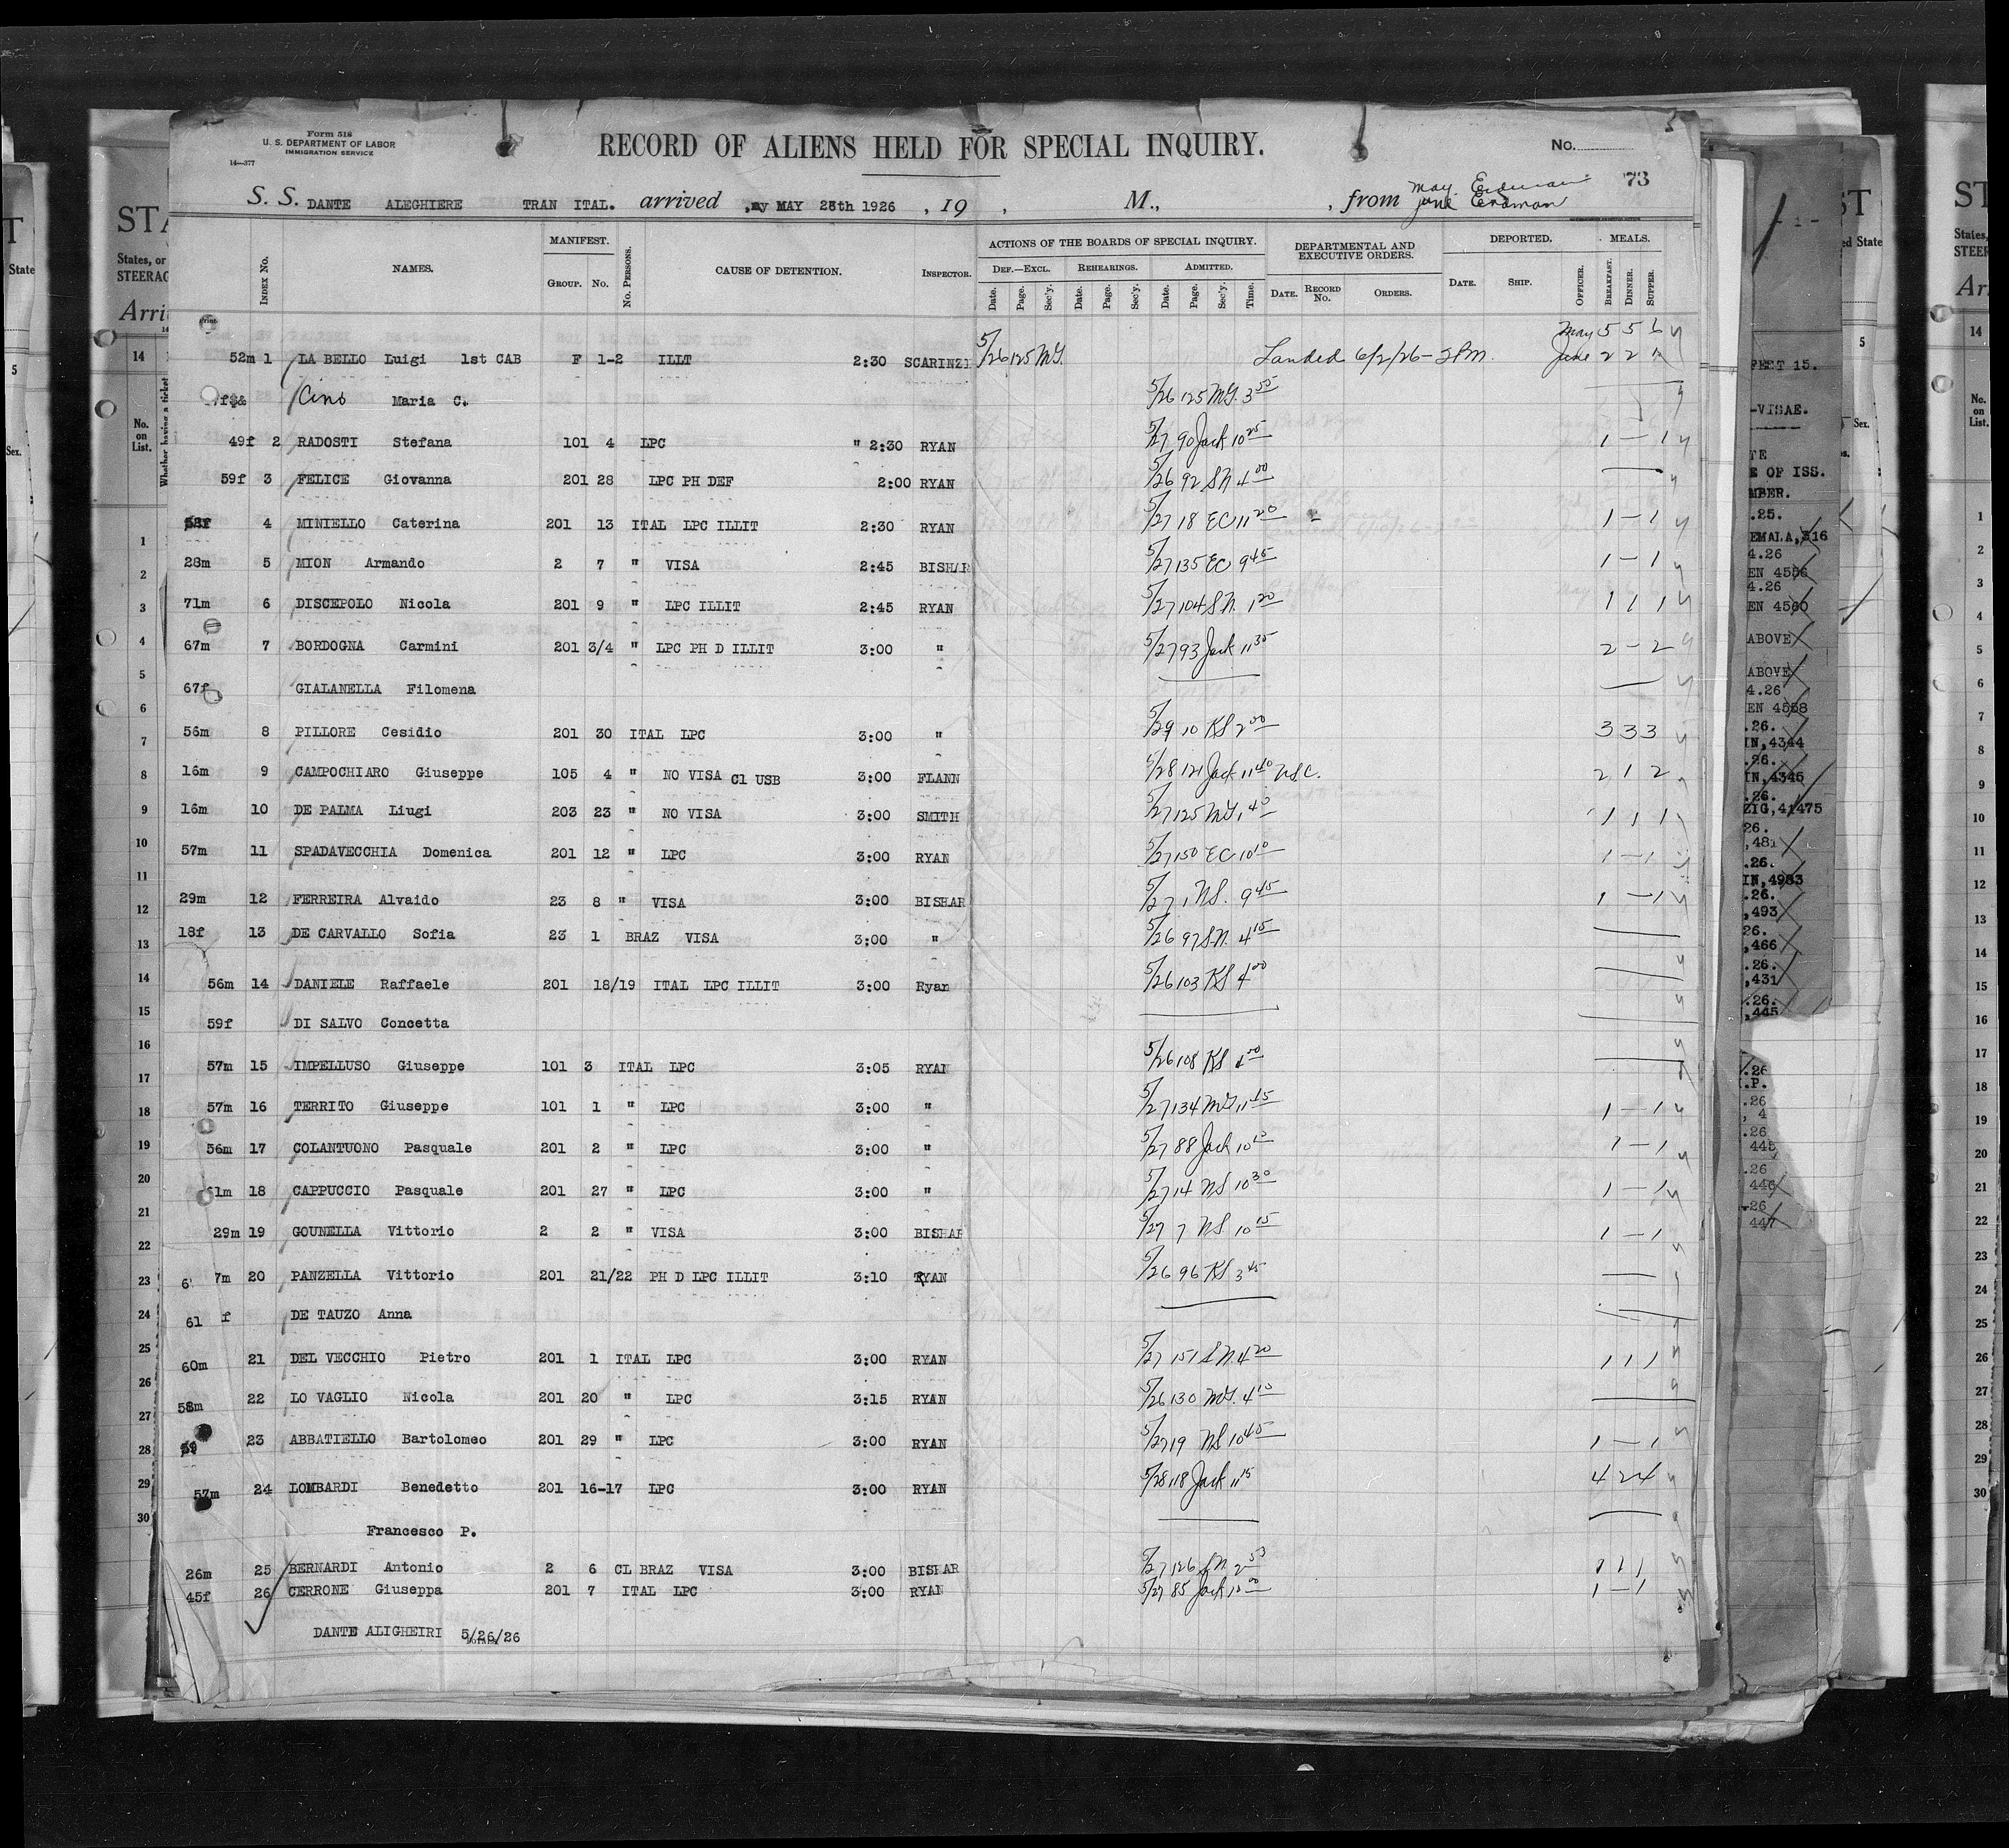 Form 518
U. S. DEPARTMENT OF LABOR
IMMIGRATION SERVICE
14—377
RECORD OF ALIENS HELD FOR SPECIAL INQUIRY.
No.
73
S. S. DANTE ALEGHIERE TRAN ITAL. arrived MAY 26th 1926, 19 , M., , from May Erdman
June Erdman
Index No. NAMES. MANIFEST. Group. No. No. Persons. CAUSE OF DETENTION. Inspector. ACTIONS OF THE BOARDS OF SPECIAL INQUIRY. Def.—Excl. Date. Page. Sec'y. Rehearings. Date. Page. Sec'y. Admitted. Date. Page. Sec'y. Time. DEPARTMENTAL AND EXECUTIVE ORDERS. Date. Record No. Orders. DEPORTED. Date. Ship. MEALS. Officer. Breakfast. Dinner. Supper.
May 5 5 6
52m 1 LA BELLO Luigi 1st CAB F 1-2 ILLT 2:30 SCARINZI 5/26 125 MG. Landed 6/2/26 - 2PM. June 2 2 1
Cino Maria C. 5/26 125 MG. 3 55
49f 2 RADOSTI Stefana 101 4 LPC " 2:30 RYAN 5/27 90 Jack 10 25 1 — 1
59f 3 FELICE Giovanna 201 28 LPC PH DEF 2:00 RYAN 5/26 92 SN 4 00
4 MINIELLO Caterina 201 13 ITAL LPC ILLIT 2:30 RYAN 5/27 18 EC 11 20 1 — 1
28m 5 MION Armando 2 7 " VISA 2:45 BISHAR 5/27 135 EC 9 45 1 — 1
71m 6 DISCEPOLO Nicola 201 9 " LPC ILLIT 2:45 RYAN 5/27 104 SN. 1 20 1 1 1
67m 7 BORDOGNA Carmini 201 3/4 " LPC PH D ILLIT 3:00 " 5/27 93 Jack 11 35 2 — 2
67f GIALANELLA Filomena
56m 8 PILLORE Cesidio 201 30 ITAL LPC 3:00 " 5/29 10 KS 2 00 3 3 3
16m 9 CAMPOCHIARO Giuseppe 105 4 " NO VISA Cl USB 3:00 FLANN 5/28 121 Jack 11 40 2 1 2
16m 10 DE PALMA Liugi 203 23 " NO VISA 3:00 SMITH 5/27 125 MG 1 40 1 1 1
57m 11 SPADAVECCHIA Domenica 201 12 " LPC 3:00 RYAN 5/27 150 EC 10 10 1 — 1
29m 12 FERREIRA Alvaido 23 8 " VISA 3:00 BISHAR 5/27 1 NS. 9 45 1 — 1
18f 13 DE CARVALLO Sofia 23 1 BRAZ VISA 3:00 " 5/26 97 SN. 4 15
56m 14 DANIELE Raffaele 201 18/19 ITAL LPC ILLIT 3:00 Ryan 5/26 103 KS 4 00
59f DI SALVO Concetta
57m 15 IMPELLUSO Giuseppe 101 3 ITAL LPC 3:05 RYAN 5/26 108 KS 4 00
57m 16 TERRITO Giuseppe 101 1 " LPC 3:00 " 5/27 134 MG 11 45 1 — 1
56m 17 COLANTUONO Pasquale 201 2 " LPC 3:00 " 5/27 88 Jack 10 10 1 — 1
61m 18 CAPPUCCIO Pasquale 201 27 " LPC 3:00 " 5/27 14 NS 10 30 1 — 1
29m 19 GOUNELLA Vittorio 2 2 " VISA 3:00 BISHAR 5/27 7 NS 10 15 1 — 1
67m 20 PANZELLA Vittorio 201 21/22 PH D LPC ILLIT 3:10 RYAN 5/26 96 KS 3 45
61 f DE TAUZO Anna
60m 21 DEL VECCHIO Pietro 201 1 ITAL LPC 3:00 RYAN 5/27 151 SN. 4 20 1 1 1
58m 22 LO VAGLIO Nicola 201 20 " LPC 3:15 RYAN 5/26 130 MG. 4 10
59 23 ABBATIELLO Bartolomeo 201 29 " LPC 3:00 RYAN 5/27 19 NS 10 45 1 — 1
57m 24 LOMBARDI Benedetto 201 16-17 LPC 3:00 RYAN 5/28 118 Jack 11 15 4 2 4
Francesco P.
26m 25 BERNARDI Antonio 2 6 CL BRAZ VISA 3:00 BISHAR 5/27 126 SN 2 53 1 1 1
45f 26 CERRONE Giuseppa 201 7 ITAL LPC 3:00 RYAN 5/27 85 Jack 10 00 1 — 1
DANTE ALIGHEIRI 5/26/26